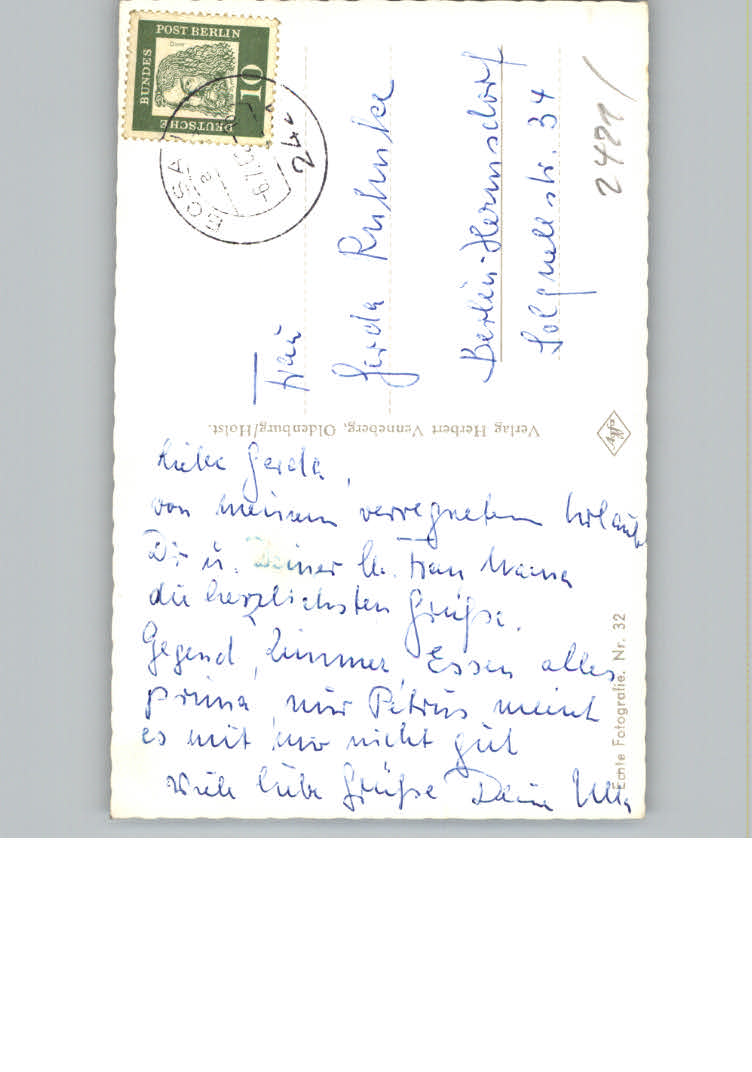 Liebe Gerda,
von meinem verregneten Urlaub
Dir u. Deiner lb. Frau Mama
die herzlichsten Grüße.
Gegend, Zimmer, Essen alles
prima, nur Petrus meint
es mit mir nicht gut
Viele liebe Grüße Deine
Frau
Gerda
Berlin-Hermsdorf
str. 34
2421/
Verlag Herbert Venneberg, Oldenburg/Holst.
Echte Fotografie. Nr. 32
Agfa
DEUTSCHE
BUNDES
POST BERLIN
10
Dürer